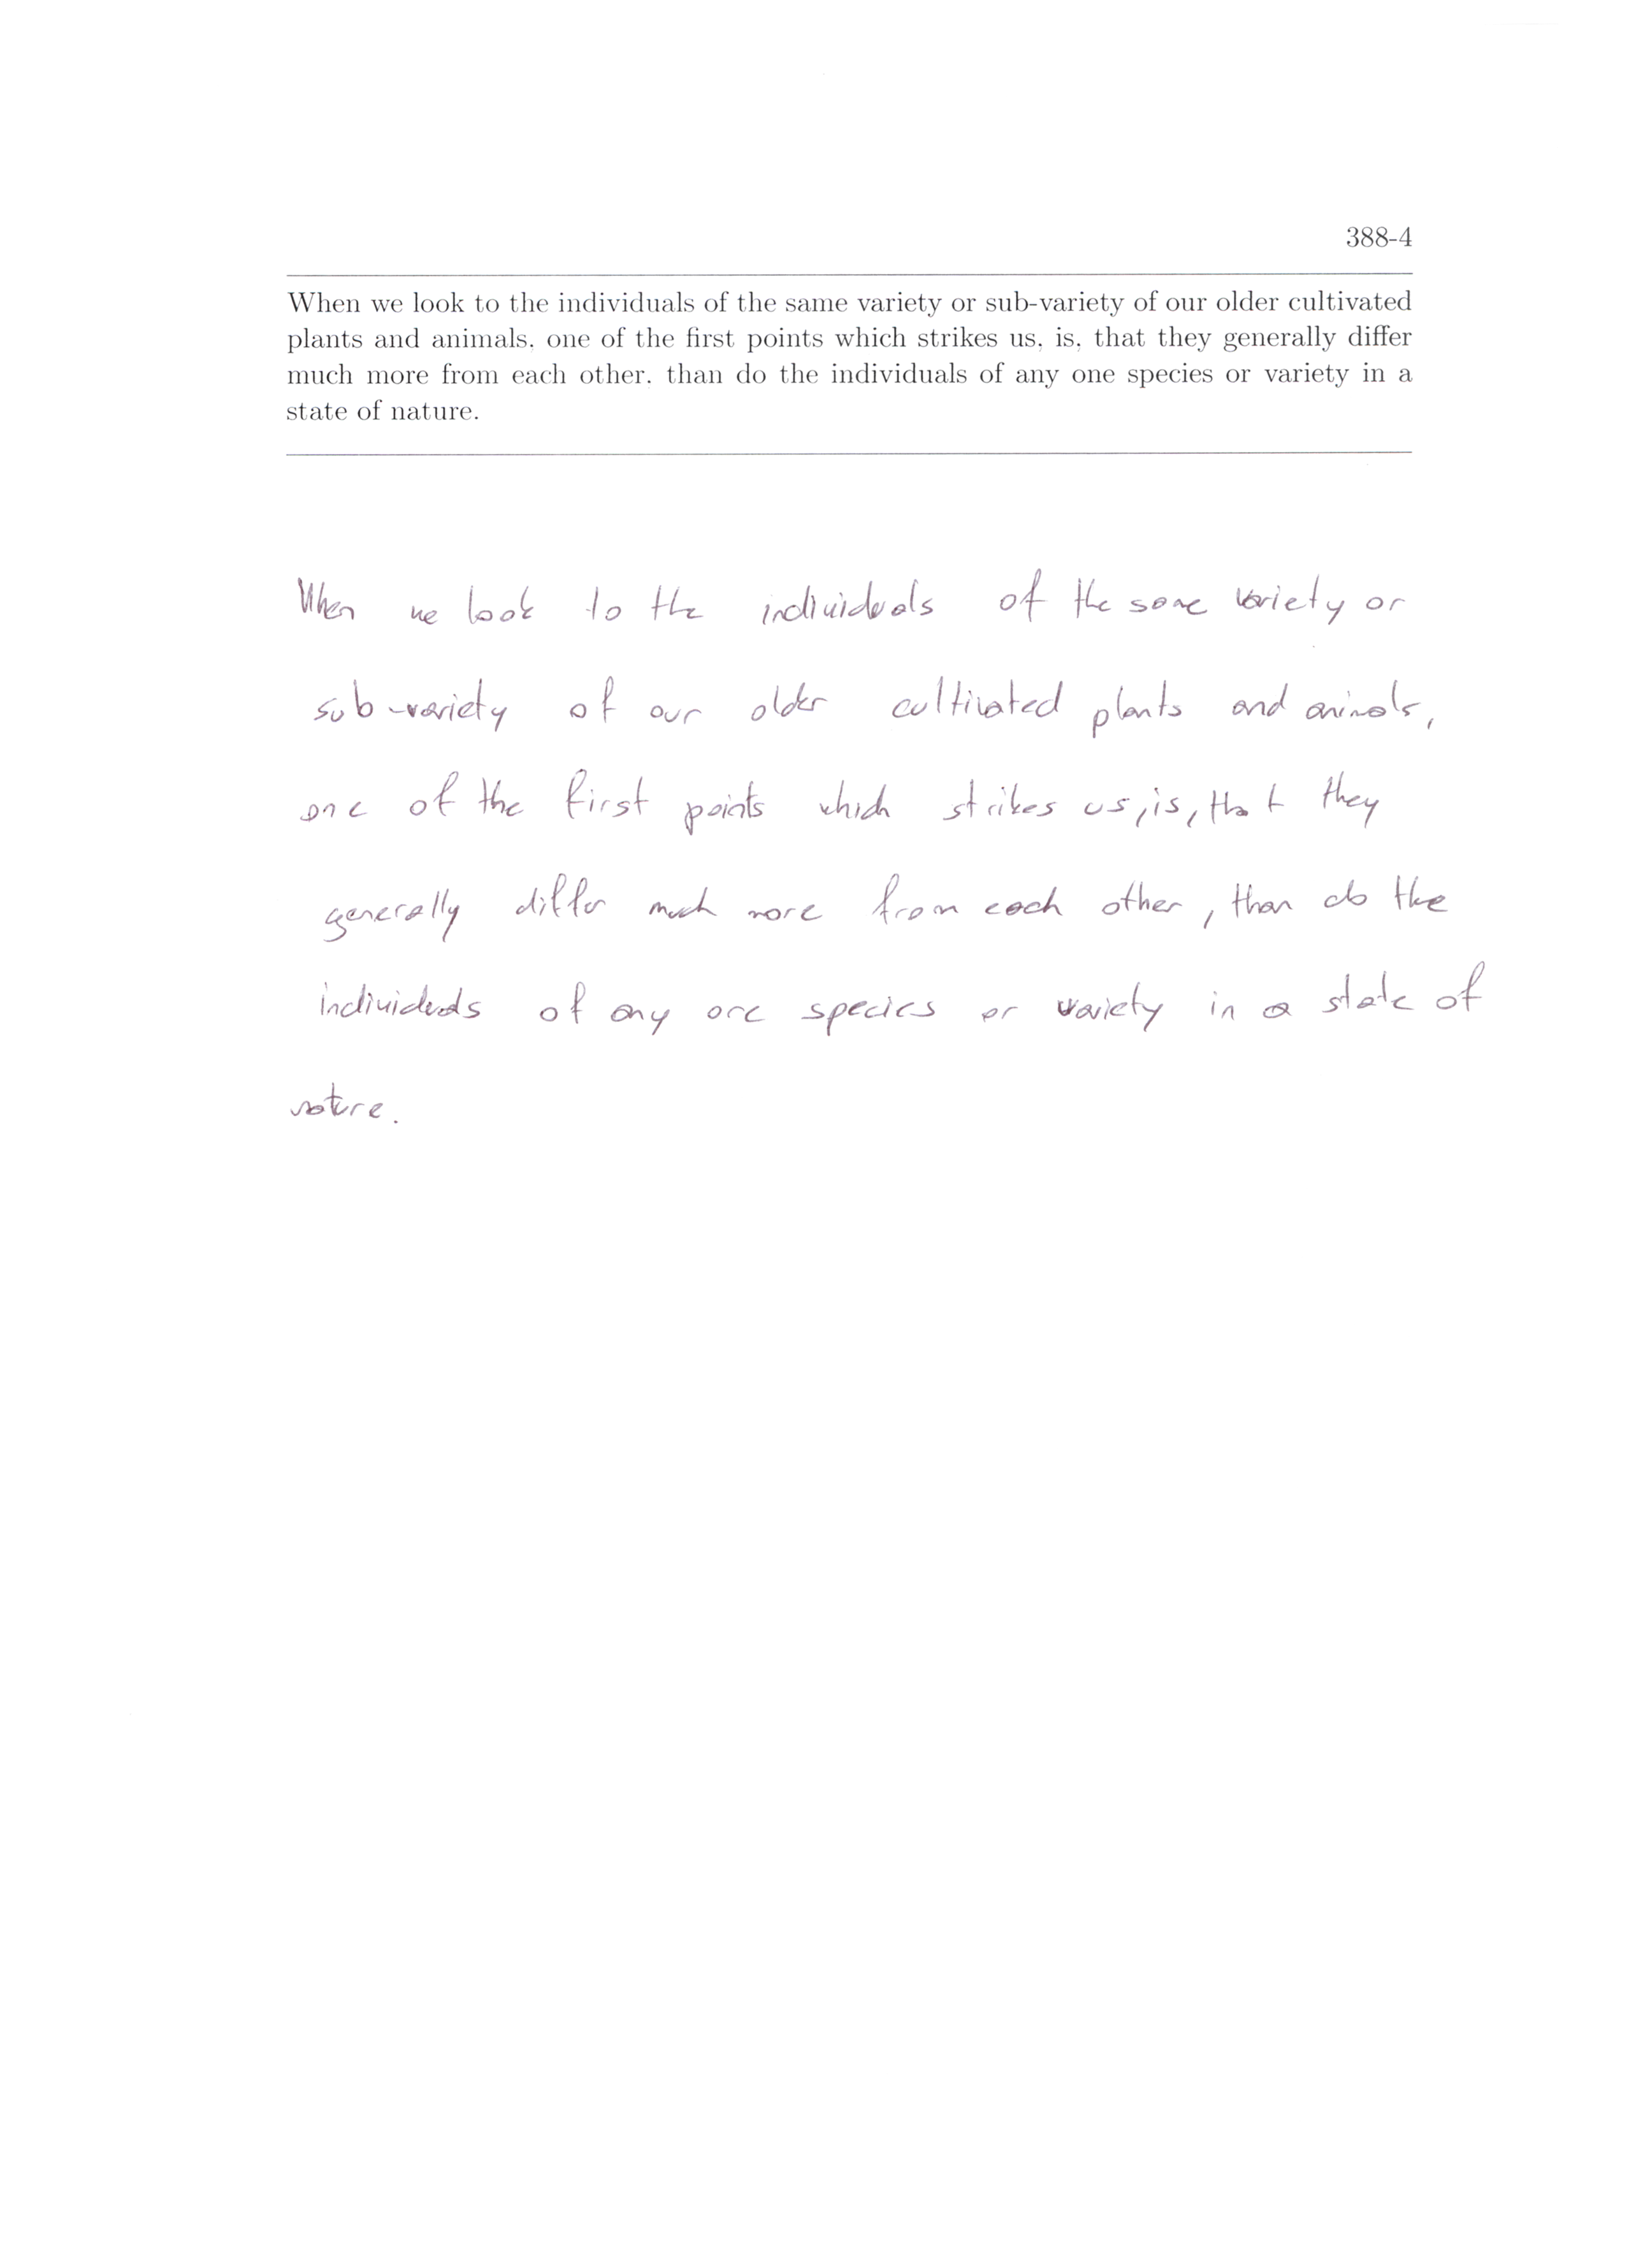 388-4
When we look to the individuals of the same variety or sub-variety of our older cultivated
plants and animals, one of the first points which strikes us, is, that they generally differ
much more from each other, than do the individuals of any one species or variety in a
state of nature.
When we look to the individuals of the same variety or
sub-variety of our older cultivated plants and animals,
one of the first points which strikes us, is, that they
generally differ much more from each other, than do the
individuals of any one species or variety in a state of
nature.